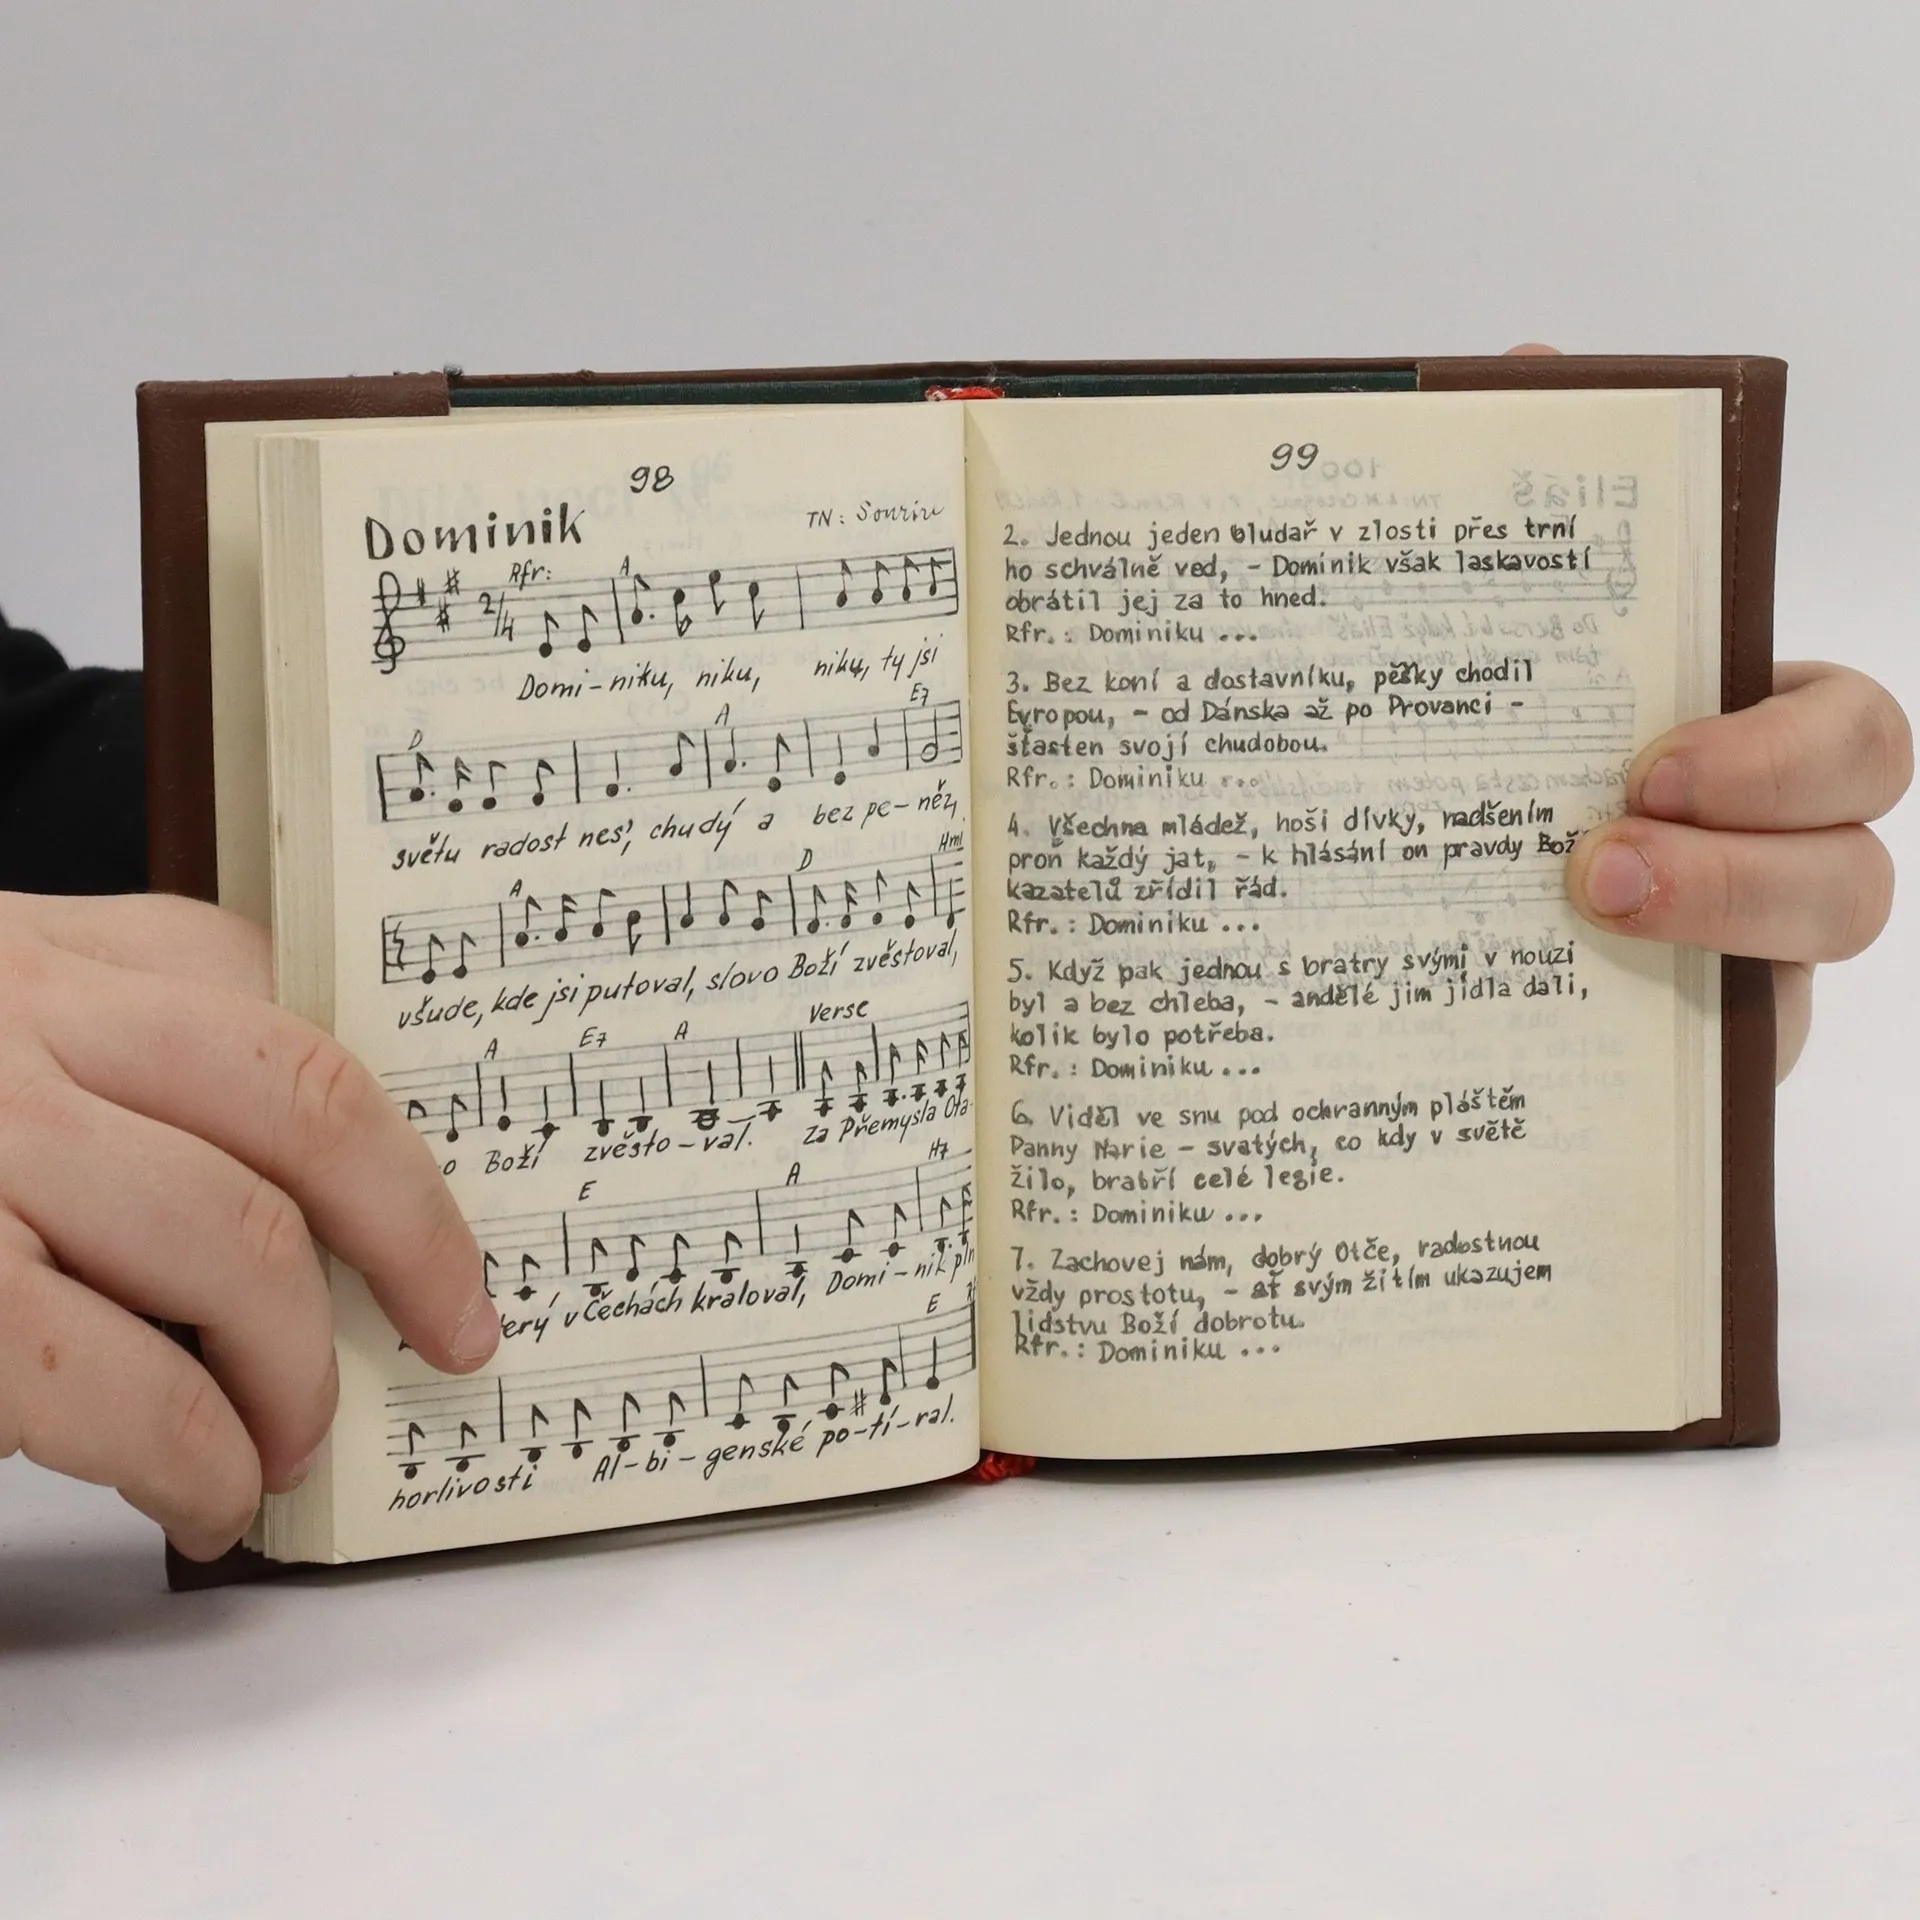 98
Dominik
TN: Sourire
Rfr:
A
2/4
Domi-niku, niku, niku, ty jsi
D A E7
světu radost nes', chudý a bez pe-něz,
A D Hmi
všude, kde jsi putoval, slovo Boží zvěstoval,
A E7 A Verse
o Boží zvěsto-val. Za Přemysla Ota-
E A H7
erý v Čechách kraloval, Domi-nik pln
E
horlivosti Al-bi-genské po-tí-ral.
99
2. Jednou jeden bludař v zlosti přes trní
ho schválně ved, - Dominik však laskavostí
obrátil jej za to hned.
Rfr.: Dominiku ...
3. Bez koní a dostavníku, pěšky chodil
Evropou, - od Dánska až po Provanci -
šťasten svojí chudobou.
Rfr.: Dominiku ...
4. Všechna mládež, hoši dívky, nadšením
proň každý jat, - k hlásání on pravdy Bož
kazatelů zřídil řád.
Rfr.: Dominiku ...
5. Když pak jednou s bratry svými v nouzi
byl a bez chleba, - andělé jim jídla dali,
kolik bylo potřeba.
Rfr.: Dominiku ...
6. Viděl ve snu pod ochranným pláštěm
Panny Marie - svatých, co kdy v světě
žilo, bratří celé legie.
Rfr.: Dominiku ...
7. Zachovej nám, dobrý Otče, radostnou
vždy prostotu, - ať svým žitím ukazujem
lidstvu Boží dobrotu.
Rfr.: Dominiku ...